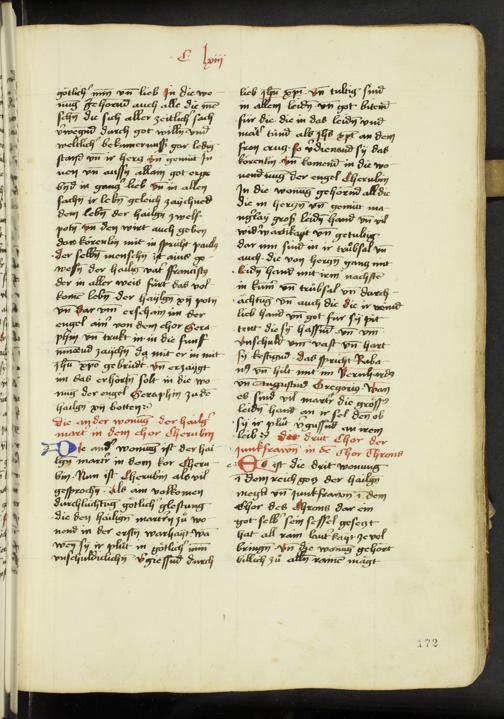 C lxiii
götlich min vnd lieb In die wo
nung gehörnd auch alle die me
schen die sich aller zeitlich sach
verwegnd durch got willen vnd
weltlich bekumernuss gar ledig
stand vn ir herg in gemüt in
nen vn aussn allain got erge
ben in gantz lieb vn in allen
sachn ir lebn geleich zaichned
dem lebn der hailgn zwelf
potn vn den wirt auch geben
das körenlin mit in spricht paulus
der selbn menschn ist ains ge
wesen der hailig vat franciscus
der in aller weis fürt das vol
kome lebn der hailgn xij potn
vn dar vm erschain im der
engel ain von dem chor Sera
phin vn trukt in in die fünf
minend zaichn da mit er in mit
ihu xpo gebildt vn erzaigt
im das er hörn solt in die wo
nung der engel Seraphin zu de
hailgn xij botten
die ander wonung der hailgn
martrer in dem chor Cherubin
Die and wonung ist der hai
lgn martrer in dem kor Cheru
bin Nun ist Cherubin als vil
gesprochn als am volkomen
durchlüchtug götlich glestung
die den hailgn martrern zu wo
nend in der ersten warhayt wa
wen sy ir plut in götlich min
vnschuldiclichn vergiessend durch
lieb ihu xpi vn tultig sind
in allem leiden vn got bitend
für die die in das leiden vnd
marter tund als ihs xps an dem
fron crutz so verdienend sy das
körenlin vn komend in die wo
nendung der engel Cherubin
In die wonug gehörnd all die
die in hergn vn gemüt ma
nigfay groß leiden hand vn vil
widerwärtikayt vn getultig
dar inn sind in ir trübsal vn
auch die von hergn gantz mit
leiden hand mit irem nächste
in kumer vn trübsal vn durch
ächtug vn auch die die ir veind
lieb hand vn got für sy pit
tent die sy hassend vn vm
vnschuld vm vast vn hart
sy kestigend das spricht Raba
nus vn hilt mit im Bernhardus
vn Augustinus Gregorius wan
es sind vil martrer die gröss
leiden hand an ir sel den ob
sy ir plut vergussend an irem
leib das drit Chor der
junkfrawn in de Chor Throns
Es ist die drit wonung
in dem reich gots der hailgn
megt vn junkfrawen in dem
Chor des Throns dar ein
got selb sein sessel gesetzt
hat all rain laut kayt ze vol
bringn vn die wonug gehört
billich zu allen rainen mägt
172